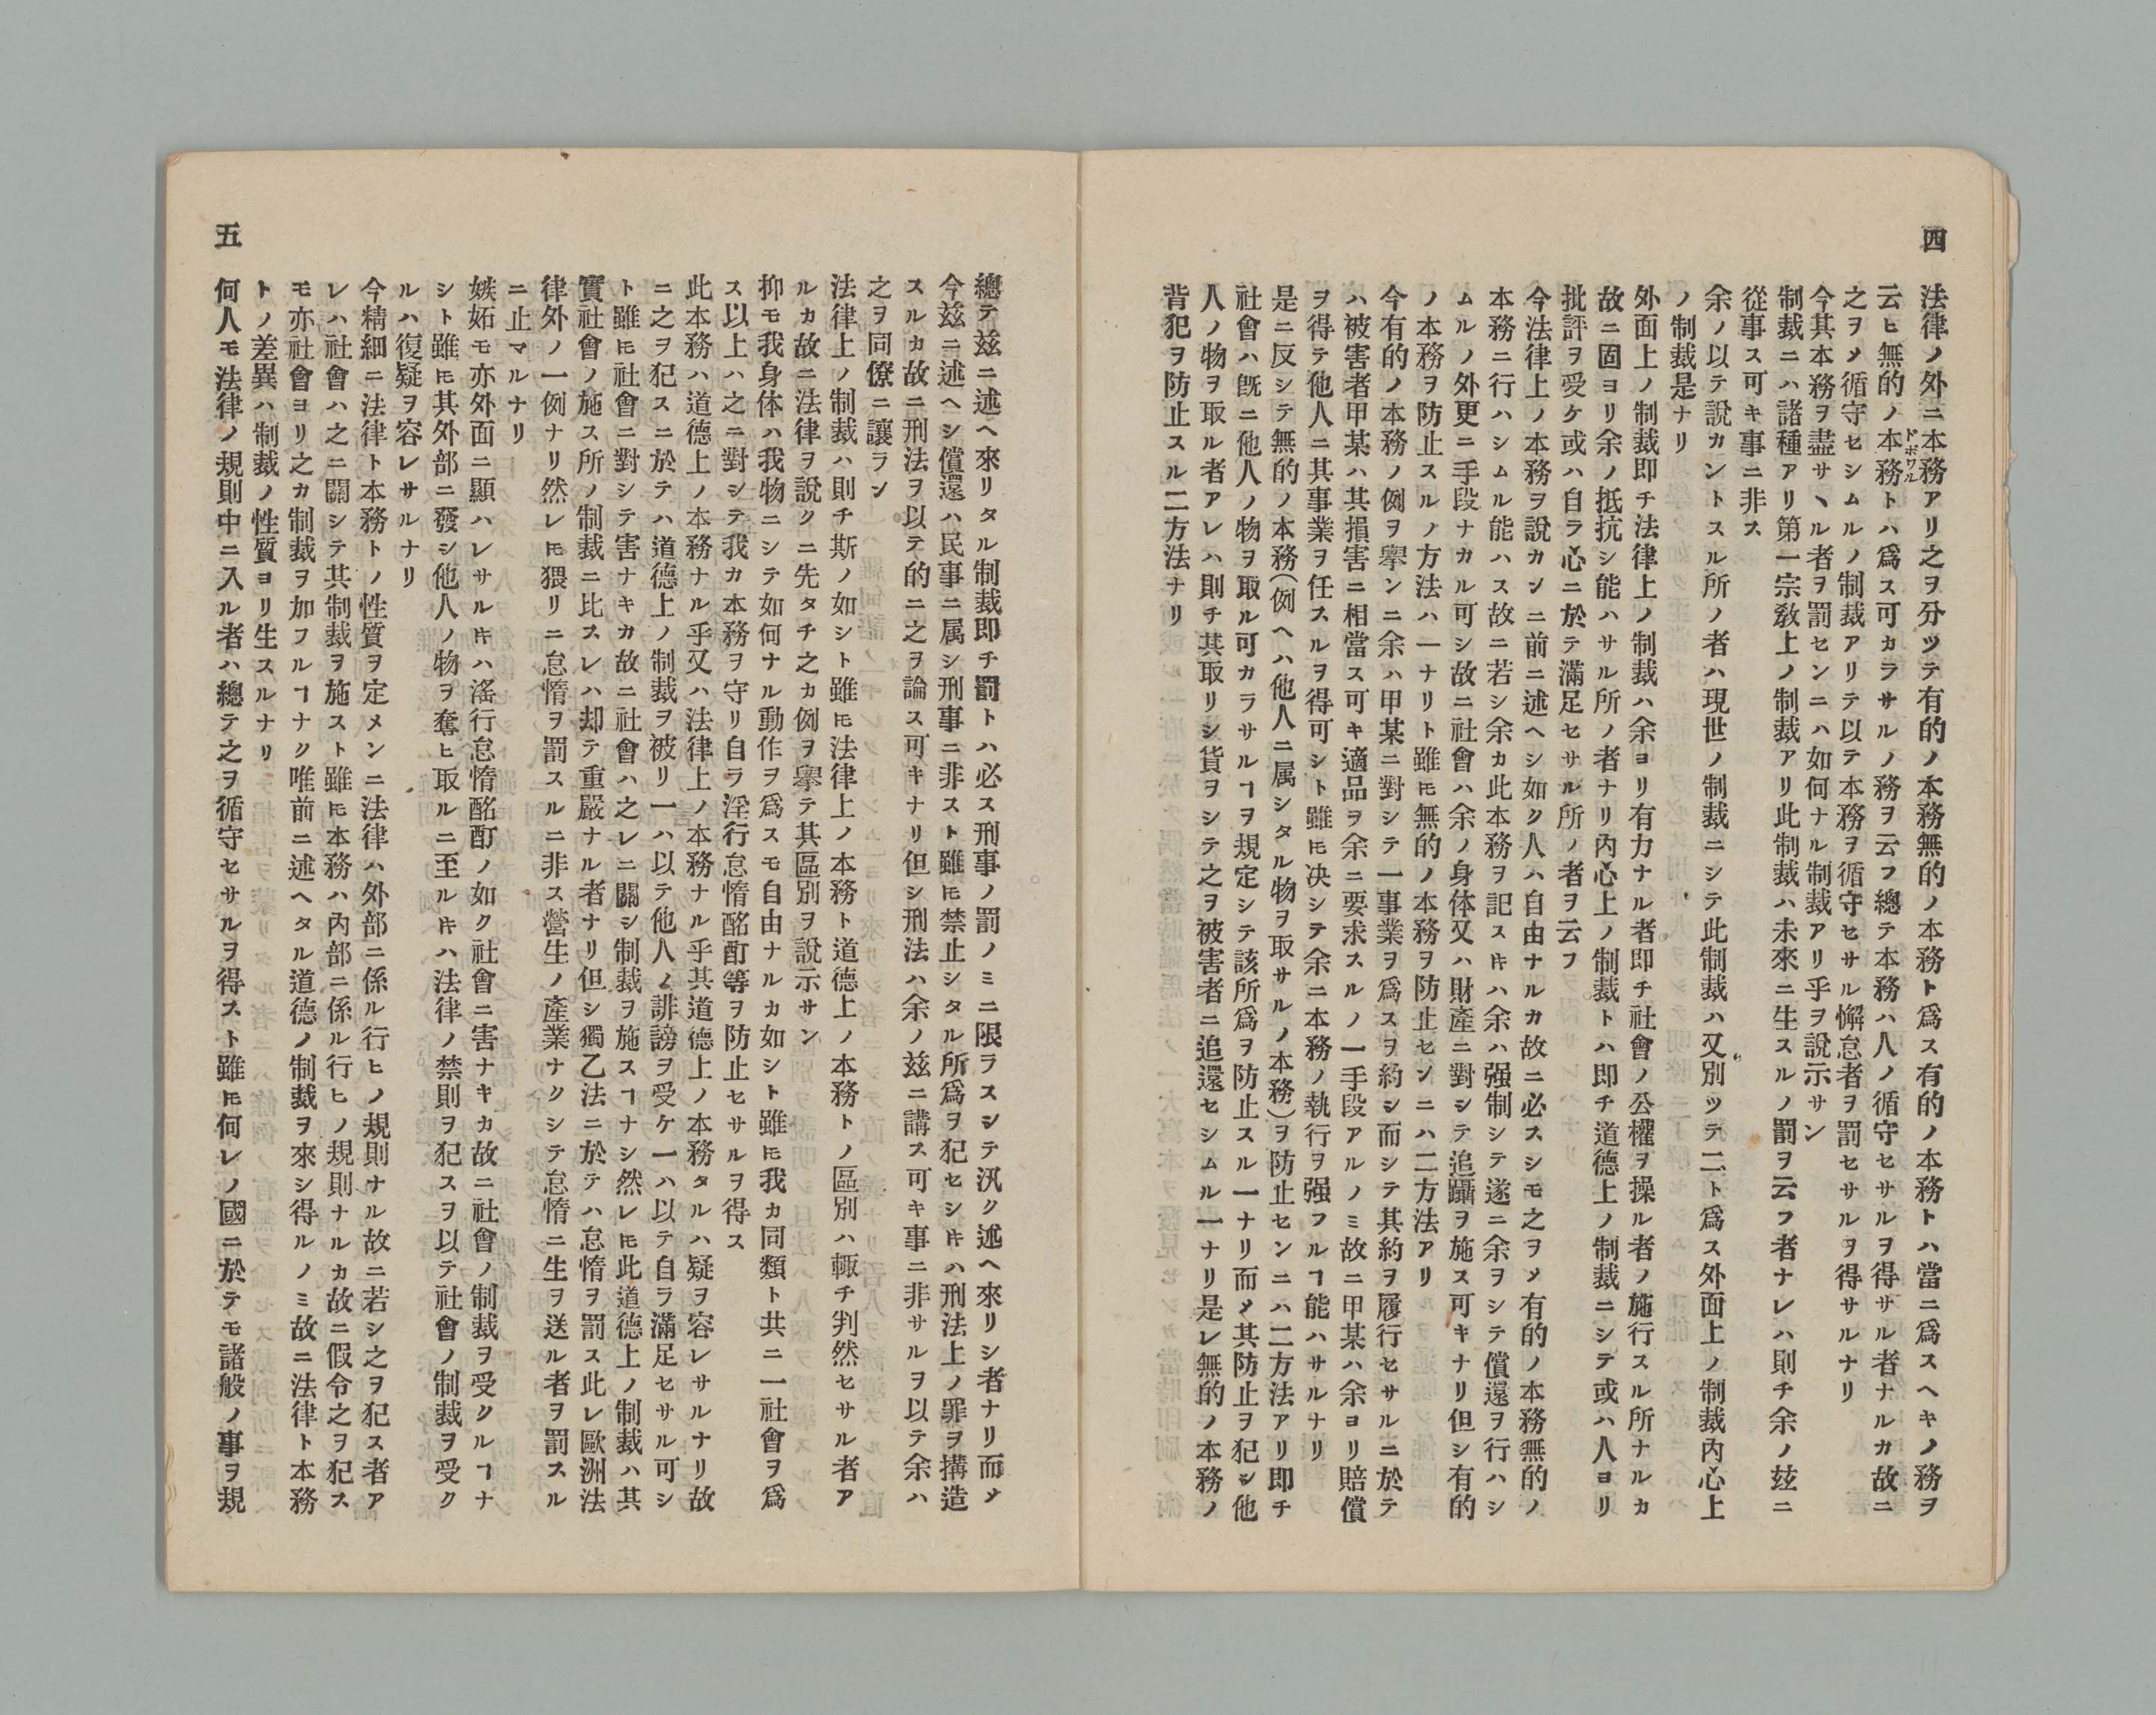 四
法律ノ外ニ本務アリ之ヲ分ツテ有的ノ本務無的ノ本務ト爲ス有的ノ本務トハ當ニ爲スヘキノ務ヲ
ドボワル
云ヒ無的ノ本務トハ爲ス可カラサルノ務ヲ云フ總テ本務ハ人ノ循守セサルヲ得サル者ナルカ故ニ
之ヲメ循守セシムルノ制裁アリテ以テ本務ヲ循守セサル懈怠者ヲ罰セサルヲ得サルナリ
今其本務ヲ盡サヽル者ヲ罰センニハ如何ナル制裁アリ乎ヲ說示サン
制裁ニハ諸種アリ第一宗敎上ノ制裁アリ此制裁ハ未來ニ生スルノ罰ヲ云フ者ナレハ則チ余ノ玆ニ
從事ス可キ事ニ非ス
余ノ以テ說カントスル所ノ者ハ現世ノ制裁ニシテ此制裁ハ又別ツテ二ト爲ス外面上ノ制裁內心上
ノ制裁是ナリ
外面上ノ制裁即チ法律上ノ制裁ハ余ヨリ有力ナル者即チ社會ノ公權ヲ操ル者ノ施行スル所ナルカ
故ニ固ヨリ余ノ抵抗シ能ハサル所ノ者ナリ內心上ノ制裁トハ即チ道德上ノ制裁ニシテ或ハ人ヨリ
批評ヲ受ケ或ハ自ラ心ニ於テ滿足セサル所ノ者ヲ云フ
今法律上ノ本務ヲ說カンニ前ニ述ヘシ如ク人ハ自由ナルカ故ニ必スシモ之ヲメ有的ノ本務無的ノ
本務ニ行ハシムル能ハス故ニ若シ余カ此本務ヲ記スキハ余ハ强制シテ遂ニ余ヲシテ償還ヲ行ハシ
ムルノ外更ニ手段ナカル可シ故ニ社會ハ余ノ身体又ハ財產ニ對シテ追躡ヲ施ス可キナリ但シ有的
ノ本務ヲ防止スルノ方法ハ一ナリト雖𪜈無的ノ本務ヲ防止センニハ二方法アリ
今有的ノ本務ノ例ヲ擧ンニ余ハ甲某ニ對シテ一事業ヲ爲スヲ約シ而シテ其約ヲ履行セサルニ於テ
ハ被害者甲某ハ其損害ニ相當ス可キ適品ヲ余ニ要求スルノ一手段アルノミ故ニ甲某ハ余ヨリ賠償
ヲ得テ他人ニ其事業ヲ任スルヲ得可シト雖𪜈决シテ余ニ本務ノ執行ヲ强フルヿ能ハサルナリ
是ニ反シテ無的ノ本務(例ヘハ他人ニ属シタル物ヲ取サルノ本務)ヲ防止センニハ二方法アリ即チ
社會ハ旣ニ他人ノ物ヲ取ル可カラサルヿヲ規定シテ該所爲ヲ防止スル一ナリ而メ其防止ヲ犯シ他
人ノ物ヲ取ル者アレハ則チ其取リシ貨ヲシテ之ヲ被害者ニ追還セシムル一ナリ是レ無的ノ本務ノ
背犯ヲ防止スル二方法ナリ
五
總テ玆ニ述ヘ來リタル制裁即チ罰トハ必ス刑事ノ罰ノミニ限ラスシテ汎ク述ヘ來リシ者ナリ而メ
今玆ニ述ヘシ償還ハ民事ニ属シ刑事ニ非スト雖𪜈禁止シタル所爲ヲ犯セシキハ刑法上ノ罪ヲ搆造
スルカ故ニ刑法ヲ以テ的ニ之ヲ論ス可キナリ但シ刑法ハ余ノ玆ニ講ス可キ事ニ非サルヲ以テ余ハ
之ヲ同僚ニ讓ラン
法律上ノ制裁ハ則チ斯ノ如シト雖𪜈法律上ノ本務ト道德上ノ本務トノ區別ハ輙チ判然セサル者ア
ルカ故ニ法律ヲ說クニ先タチ之カ例ヲ擧テ其區別ヲ說示サン
抑モ我身体ハ我物ニシテ如何ナル動作ヲ爲スモ自由ナルカ如シト雖𪜈我カ同類ト共ニ一社會ヲ爲
ス以上ハ之ニ對シテ我カ本務ヲ守リ自ラ淫行怠惰酩酊等ヲ防止セサルヲ得ス
此本務ハ道德上ノ本務ナル乎又ハ法律上ノ本務ナル乎其道德上ノ本務タルハ疑ヲ容レサルナリ故
ニ之ヲ犯スニ於テハ道德上ノ制裁ヲ被リ一ハ以テ他人ノ誹謗ヲ受ケ一ハ以テ自ラ滿足セサル可シ
ト雖𪜈社會ニ對シテ害ナキカ故ニ社會ハ之レニ關シ制裁ヲ施スヿナシ然レ𪜈此道德上ノ制裁ハ其
實社會ノ施ス所ノ制裁ニ比スレハ却テ重嚴ナル者ナリ但シ獨乙法ニ於テハ怠惰ヲ罰ス此レ歐洲法
律外ノ一例ナリ然レ𪜈猥リニ怠惰ヲ罰スルニ非ス營生ノ產業ナクシテ怠惰ニ生ヲ送ル者ヲ罰スル
ニ止マルナリ
嫉妬モ亦外面ニ顯ハレサルキハ滛行怠惰酩酊ノ如ク社會ニ害ナキカ故ニ社會ノ制裁ヲ受クルヿナ
シト雖𪜈其外部ニ發シ他人ノ物ヲ奪ヒ取ルニ至ルキハ法律ノ禁則ヲ犯スヲ以テ社會ノ制裁ヲ受ク
ルハ復疑ヲ容レサルナリ
今精細ニ法律ト本務トノ性質ヲ定メンニ法律ハ外部ニ係ル行ヒノ規則ナル故ニ若シ之ヲ犯ス者ア
レハ社會ハ之ニ關シテ其制裁ヲ施スト雖𪜈本務ハ內部ニ係ル行ヒノ規則ナルカ故ニ假令之ヲ犯ス
モ亦社會ヨリ之カ制裁ヲ加フルヿナク唯前ニ述ヘタル道德ノ制裁ヲ來シ得ルノミ故ニ法律ト本務
トノ差異ハ制裁ノ性質ヨリ生スルナリ
何人モ法律ノ規則中ニ入ル者ハ總テ之ヲ循守セサルヲ得スト雖𪜈何レノ國ニ於テモ諸般ノ事ヲ規